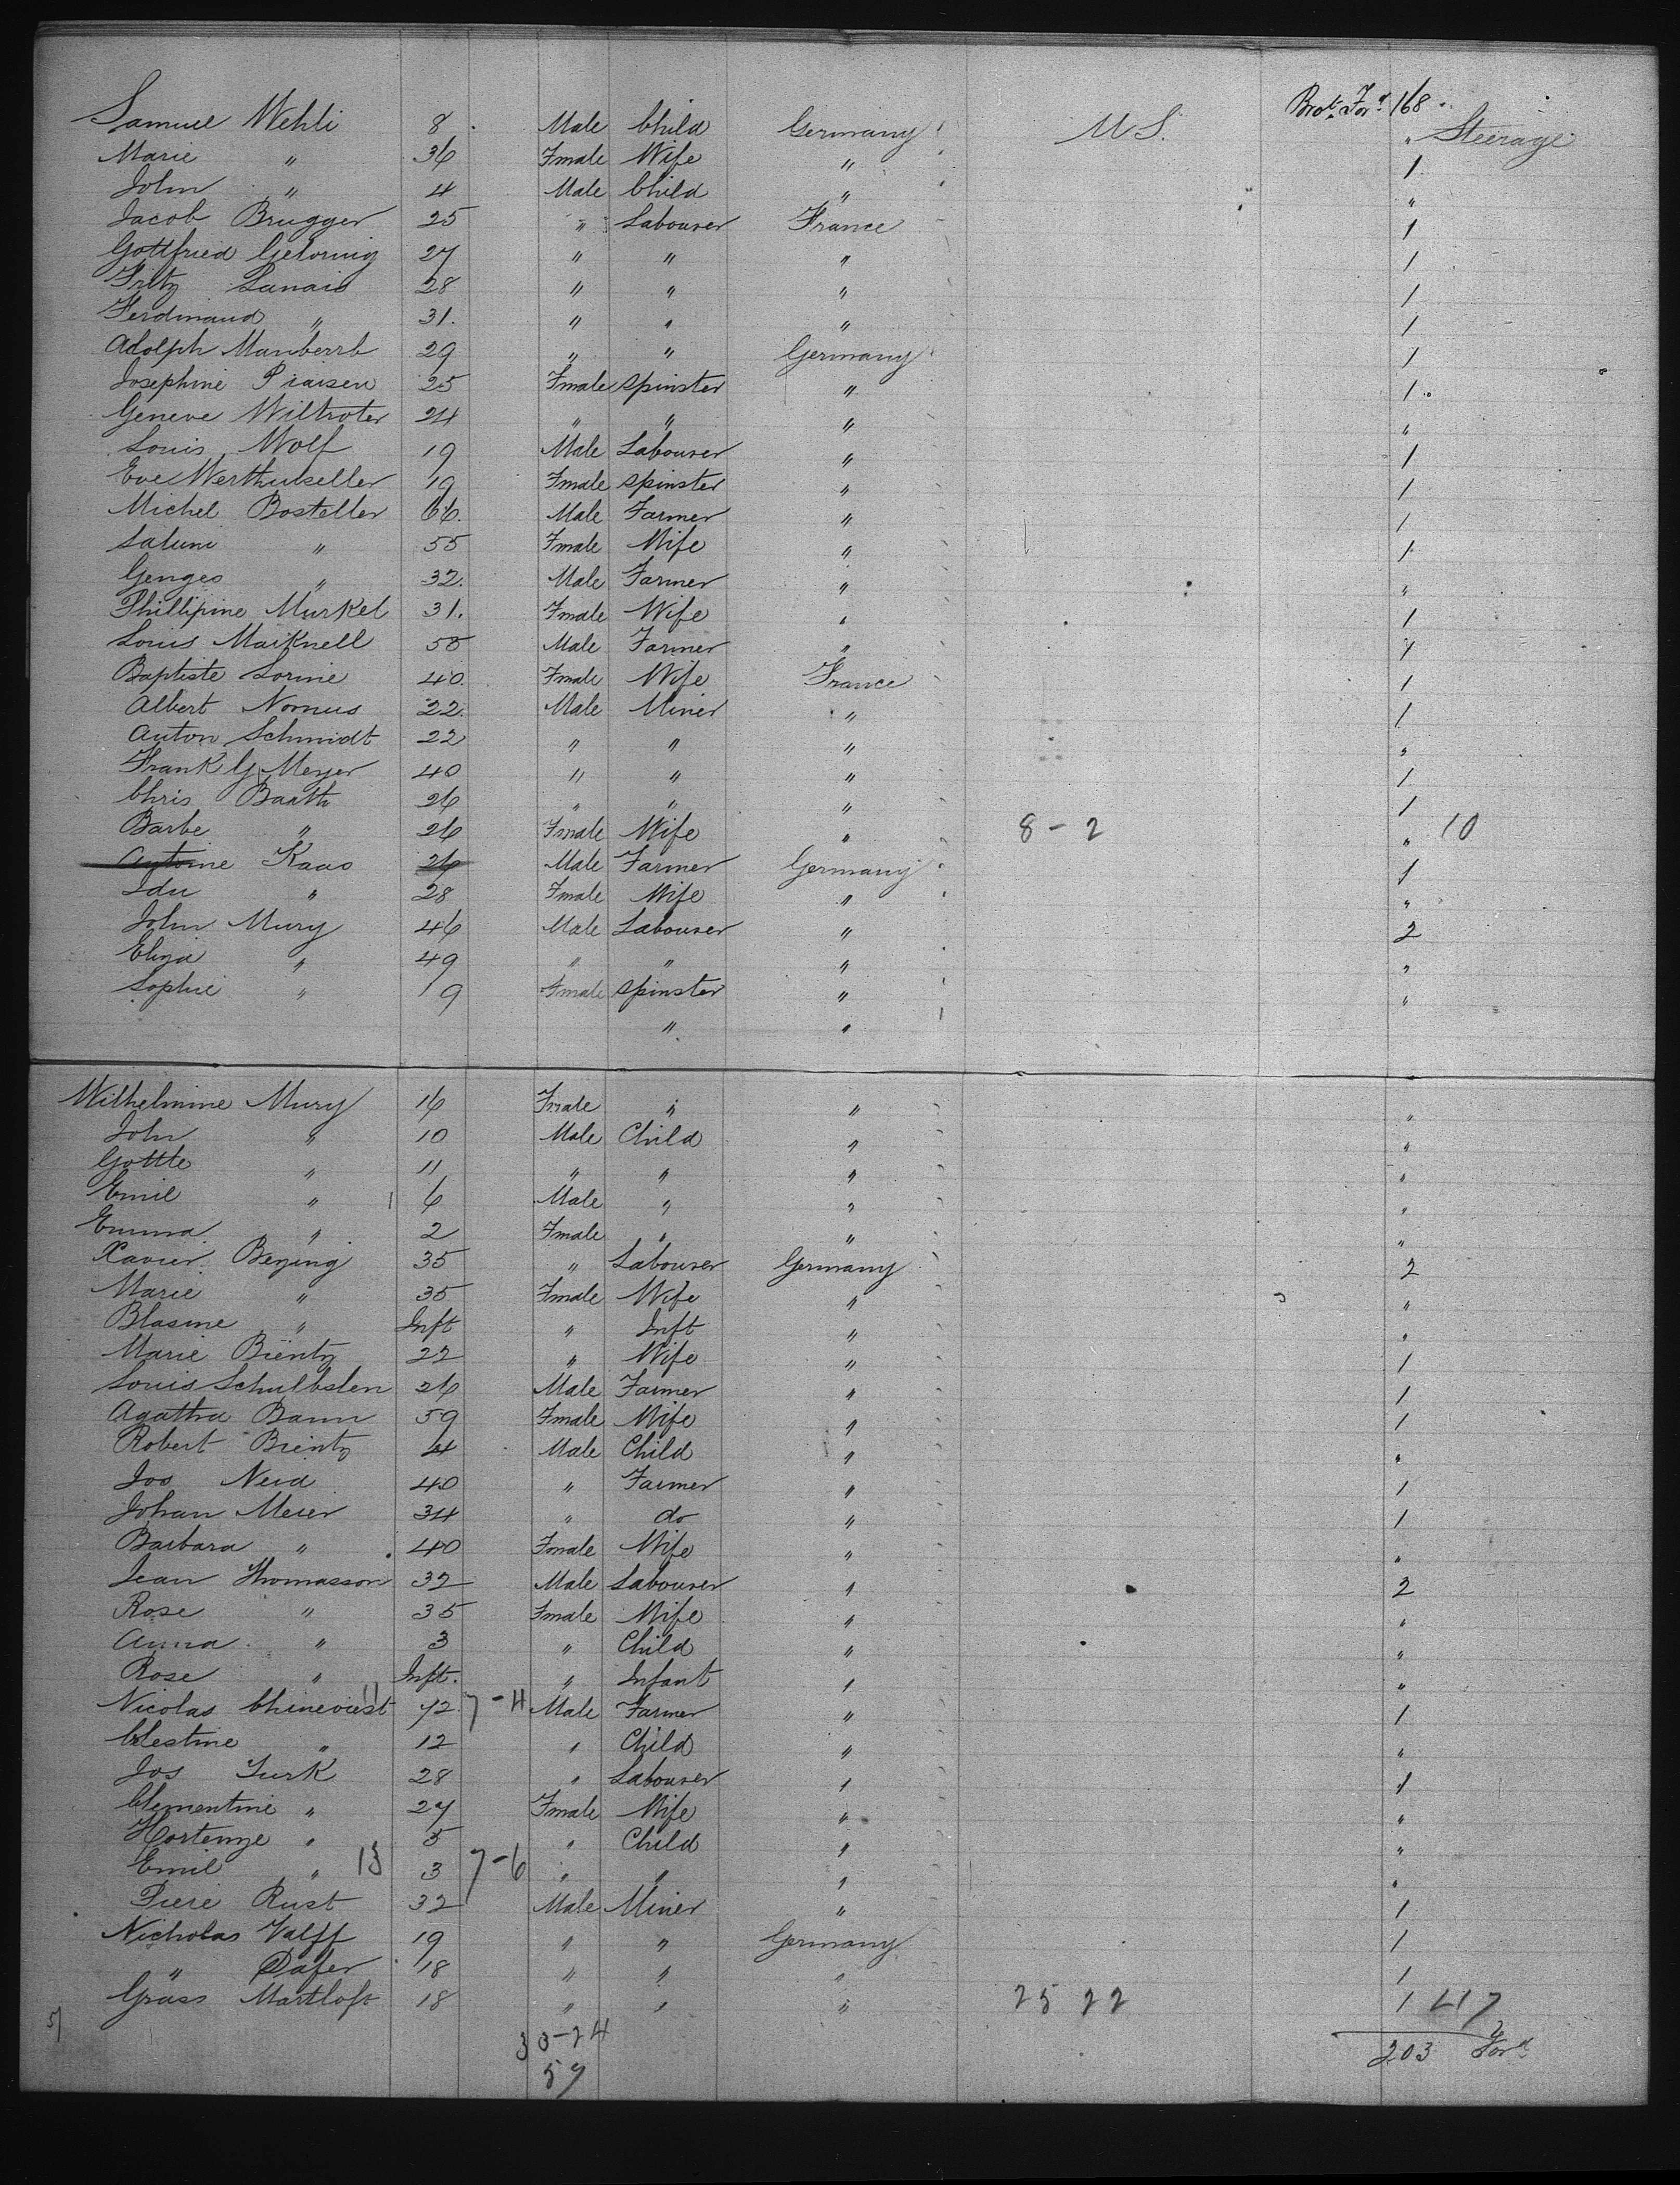 Brot. For.d 168
Samuel Wehli 8 Male Child Germany U S. " Steerage
Marie " 36 Fmale Wife " 1
John " 4 Male Child " "
Jacob Brugger 25 " Labourer France 1
Gottfried 27 " " " 1
Fritz 28 " " " 1
Ferdinand " 31. " " " 1
Adolph 29 " " Germany 1
Josephine 25 Fmale Spinster " 1
Geneve Wiltroter 24 " " " "
Louis Wolf 19 Male Labourer " 1
Eve 19 Fmale Spinster " 1
Michel Bosteller 66. Male Farmer " 1
" 55 Fmale Wife " 1
Genges " 32. Male Farmer " "
Phillipine Murkel 31. Fmale Wife " 1
Louis Maiknell 55 Male Farmer " 1
Baptiste Lorine 40. Fmale Wife France 1
Albert Nomus 22. Male Miner " 1
Anton Schmidt 22 " " " "
Frank G. Meyer 40 " " " 1
Chris Barth 26 " " " 1
Barbe " 26 Fmale Wife " 8 - 2 " 10
Antoine Kaas 26 Male Farmer Germany 1
Idu " 28 Fmale Wife " "
John Mury 46 Male Labourer " 2
Eliza " 49 " " " "
Sophie " 19 Fmale Spinster " "
" "
Wilhelmine Mury 16 Fmale " " "
John " 10 Male Child " "
Gottle " 11 " " " "
Emil " 6 Male " " "
Emma " 2 Fmale " " "
Xavier 35 " Labourer Germany 2
Marie " 35 Fmale Wife " "
Blasine " Inft " Inft " "
Marie Bientz 22 " Wife " 1
Louis 26 Male Farmer " 1
Agatha Baum 59 Fmale Wife " 1
Robert Bientz 4 Male Child " "
Jos 40 " Farmer " 1
Johan Meier 34 " do " 1
Barbara " 40 Fmale Wife " "
Jean Thomasson 32 Male Labourer " 2
Rose " 35 Fmale Wife " "
Anna " 3 " Child " "
Rose " Inft. " Infant " "
Nicolas 11 72 7-4 Male Farmer " 1
Clestine " 12 " Child " "
Jos Turk 28 " Labourer " 1
Clementine " 27 Fmale Wife " "
Hortenze " 5 " Child " "
Emil " 13 3 7-6 " " " "
Piere Rust 32 Male Miner " 1
Nicholas Valff 19 " " Germany 1
" Dafer 18 " " " 1
Grass Martloft 18 " " " 25 22 1 47
33-24 203 For.d
57
57